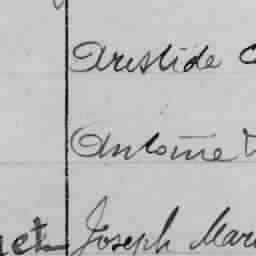 Aristide
Antoine
Joseph Mari